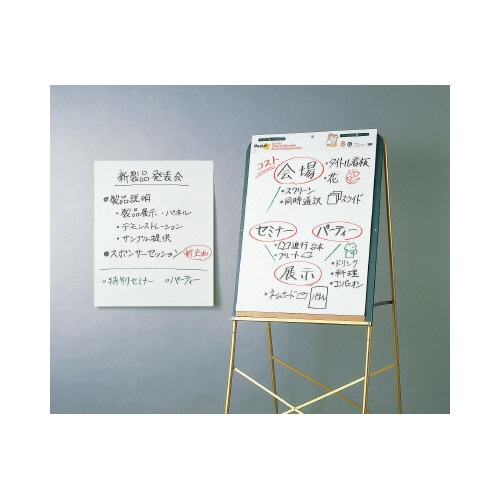 新製品発表会
●製品説明
・製品展示・パネル
・デモンストレーション
・サンプル提供
●スポンサーセッション 新企画
○特別セミナー ○パーティー
Post-it
コスト
会場
・タイトル看板
・花
・スクリーン
・同時通訳
スライド
セミナー
パーティー
・ロゴ進行台本
・プレート
・ドリンク
・料理
・コンパニオン
展示
・ネームカード
パネル